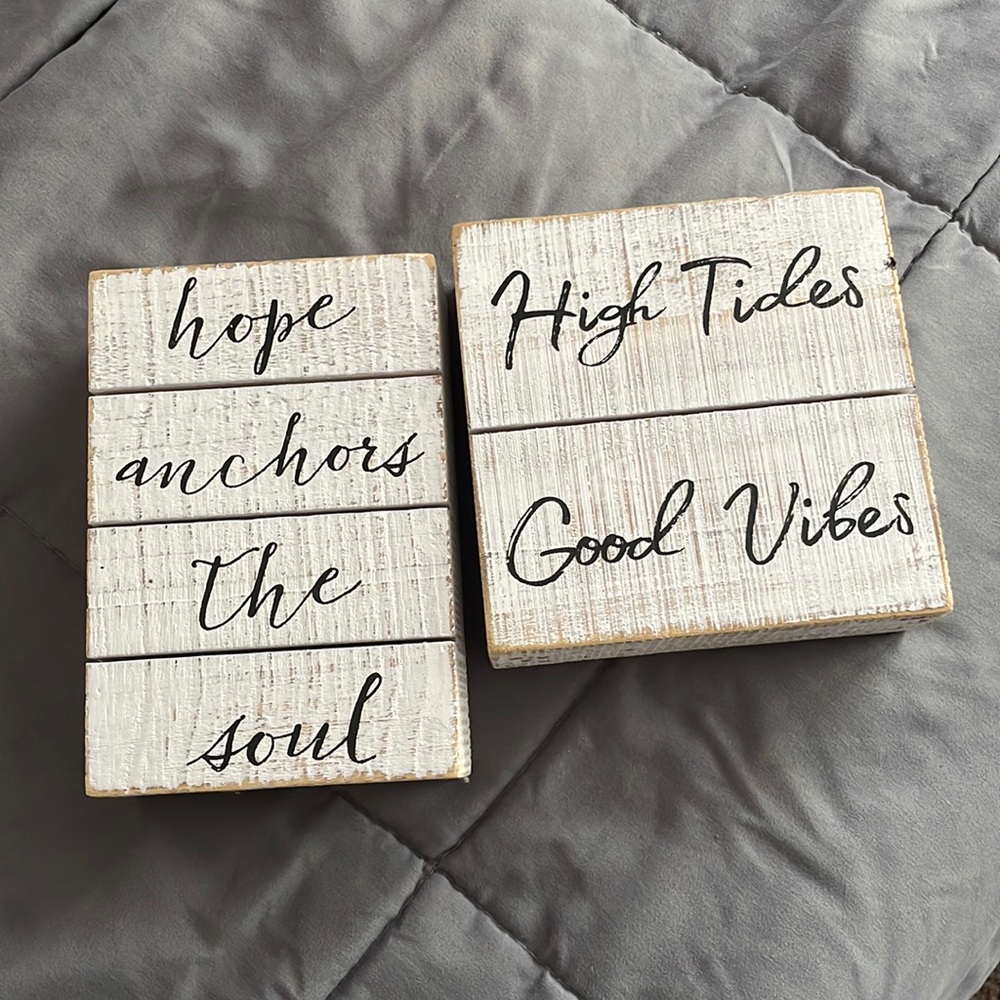 hope
anchors
the
soul
High Tides
Good Vibes